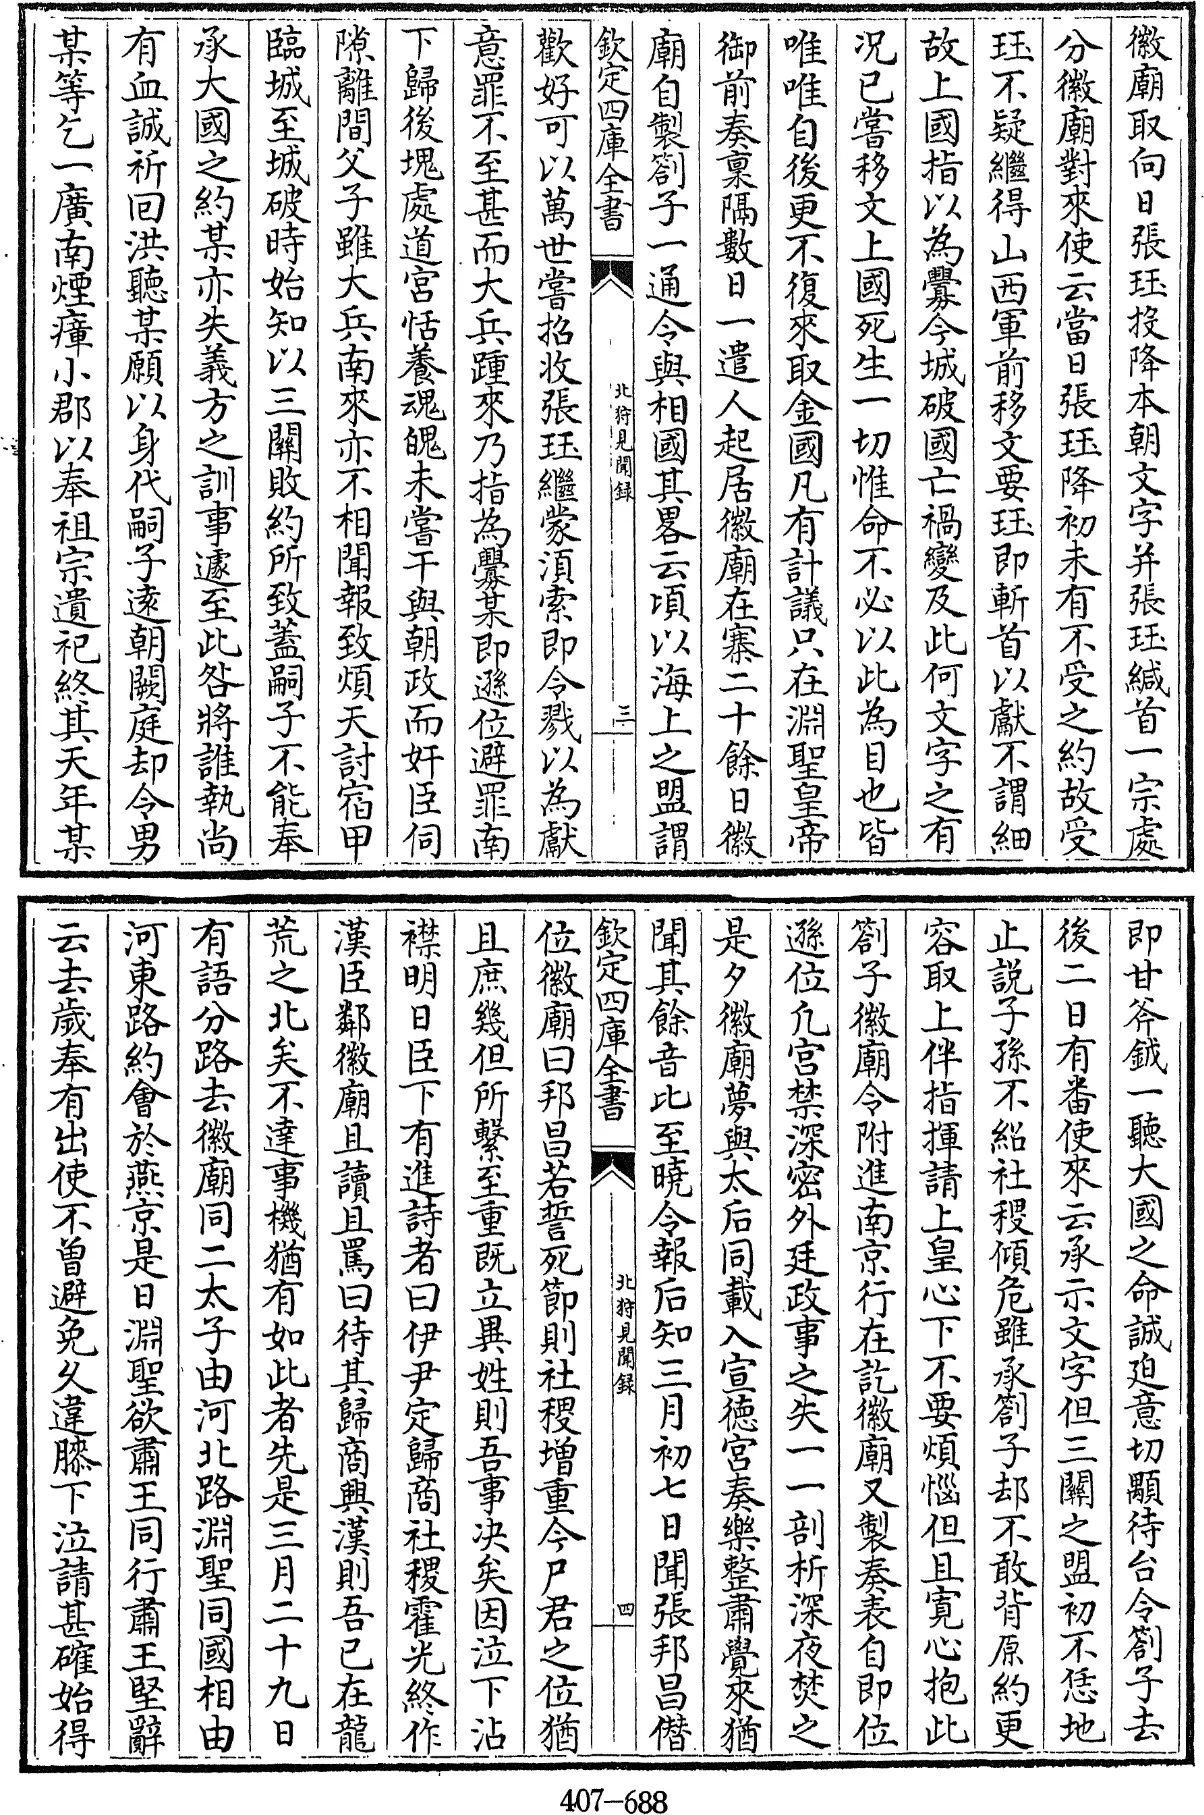 徽廟取向日張珏投降本朝文字并張珏緘首一宗處
分徽廟對來使云當日張珏降初未有不受之約故受
珏不疑繼得山西軍前移文要珏即斬首以獻不謂細
故上國指以為釁今城破國亡禍變及此何文字之有
况已嘗移文上國死生一切惟命不必以此為目也皆
唯唯自後更不復來取金國凡有計議只在淵聖皇帝
御前奏稟隔數日一遣人起居徽廟在寨二十餘日徽
廟自製劄子一通令與相國其畧云頃以海上之盟謂
欽定四庫全書
北狩見聞録
三
歡好可以萬世嘗招收張珏繼蒙湏索即令戮以為獻
意罪不至甚而大兵踵來乃指為釁某即遜位避罪南
下歸後塊處道宫恬養魂魄未嘗干與朝政而奸臣伺
隙離間父子雖大兵南來亦不相聞報致煩天討宿甲
臨城至城破時始知以三關敗約所致蓋嗣子不能奉
承大國之約某亦失義方之訓事遽至此咎將誰執尚
有血誠祈回洪聽某願以身代嗣子逺朝闕庭却令男
某等乞一廣南煙瘴小郡以奉祖宗遺祀終其天年某
即甘斧鉞一聽大國之命誠廹意切顒待台令劄子去
後二日有番使來云承示文字但三關之盟初不恁地
止説子孫不紹社稷傾危雖承劄子却不敢背原約更
容取上伴指揮請上皇心下不要煩惱但且寛心抱此
劄子徽廟令附進南京行在訖徽廟又製奏表自即位
遜位凡宫禁深密外廷政事之失一一剖析深夜焚之
是夕徽廟夢與太后同載入宣徳宫奏樂整肅覺來猶
聞其餘音比至曉令報后知三月初七日聞張邦昌僣
欽定四庫全書
北狩見聞録
四
位徽廟曰邦昌若誓死節則社稷增重今尸君之位猶
且庶幾但所繫至重既立異姓則吾事决矣因泣下沾
襟明日臣下有進詩者曰伊尹定歸商社稷霍光終作
漢臣鄰徽廟且讀且罵曰待其歸商興漢則吾已在龍
荒之北矣不達事機猶有如此者先是三月二十九日
有語分路去徽廟同二太子由河北路淵聖同國相由
河東路約會於燕京是日淵聖欲肅王同行肅王堅辭
云去歳奉有出使不曾避免久違膝下泣請甚確始得
407-688